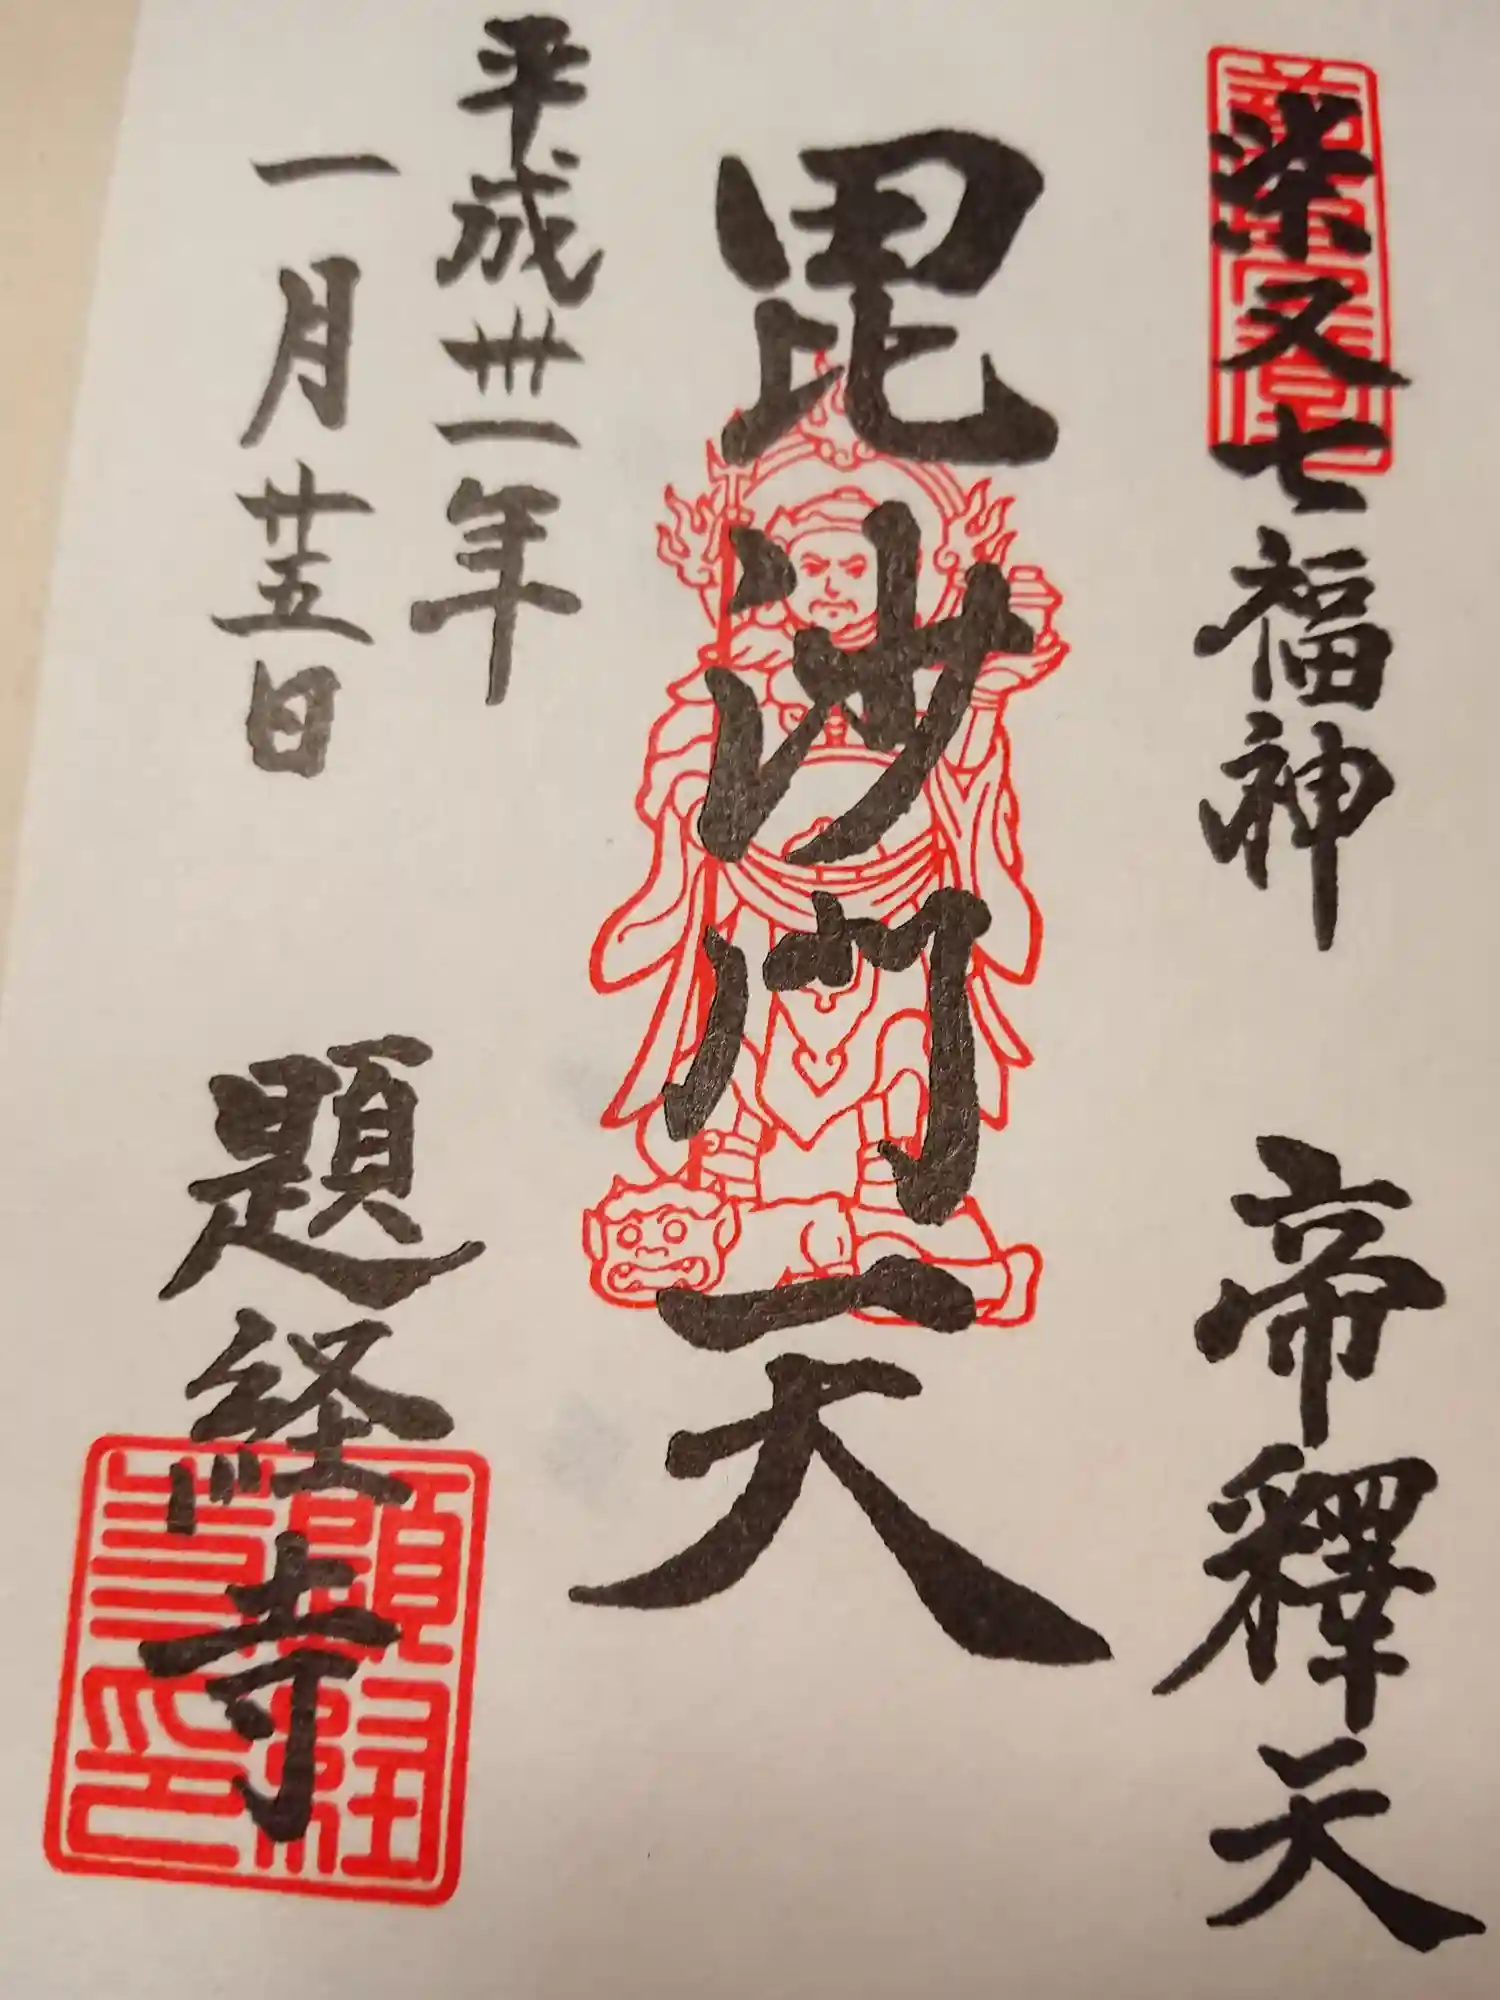 柴又七福神 帝釋天
毘沙門天
平成卅一年
一月廿五日
題経寺